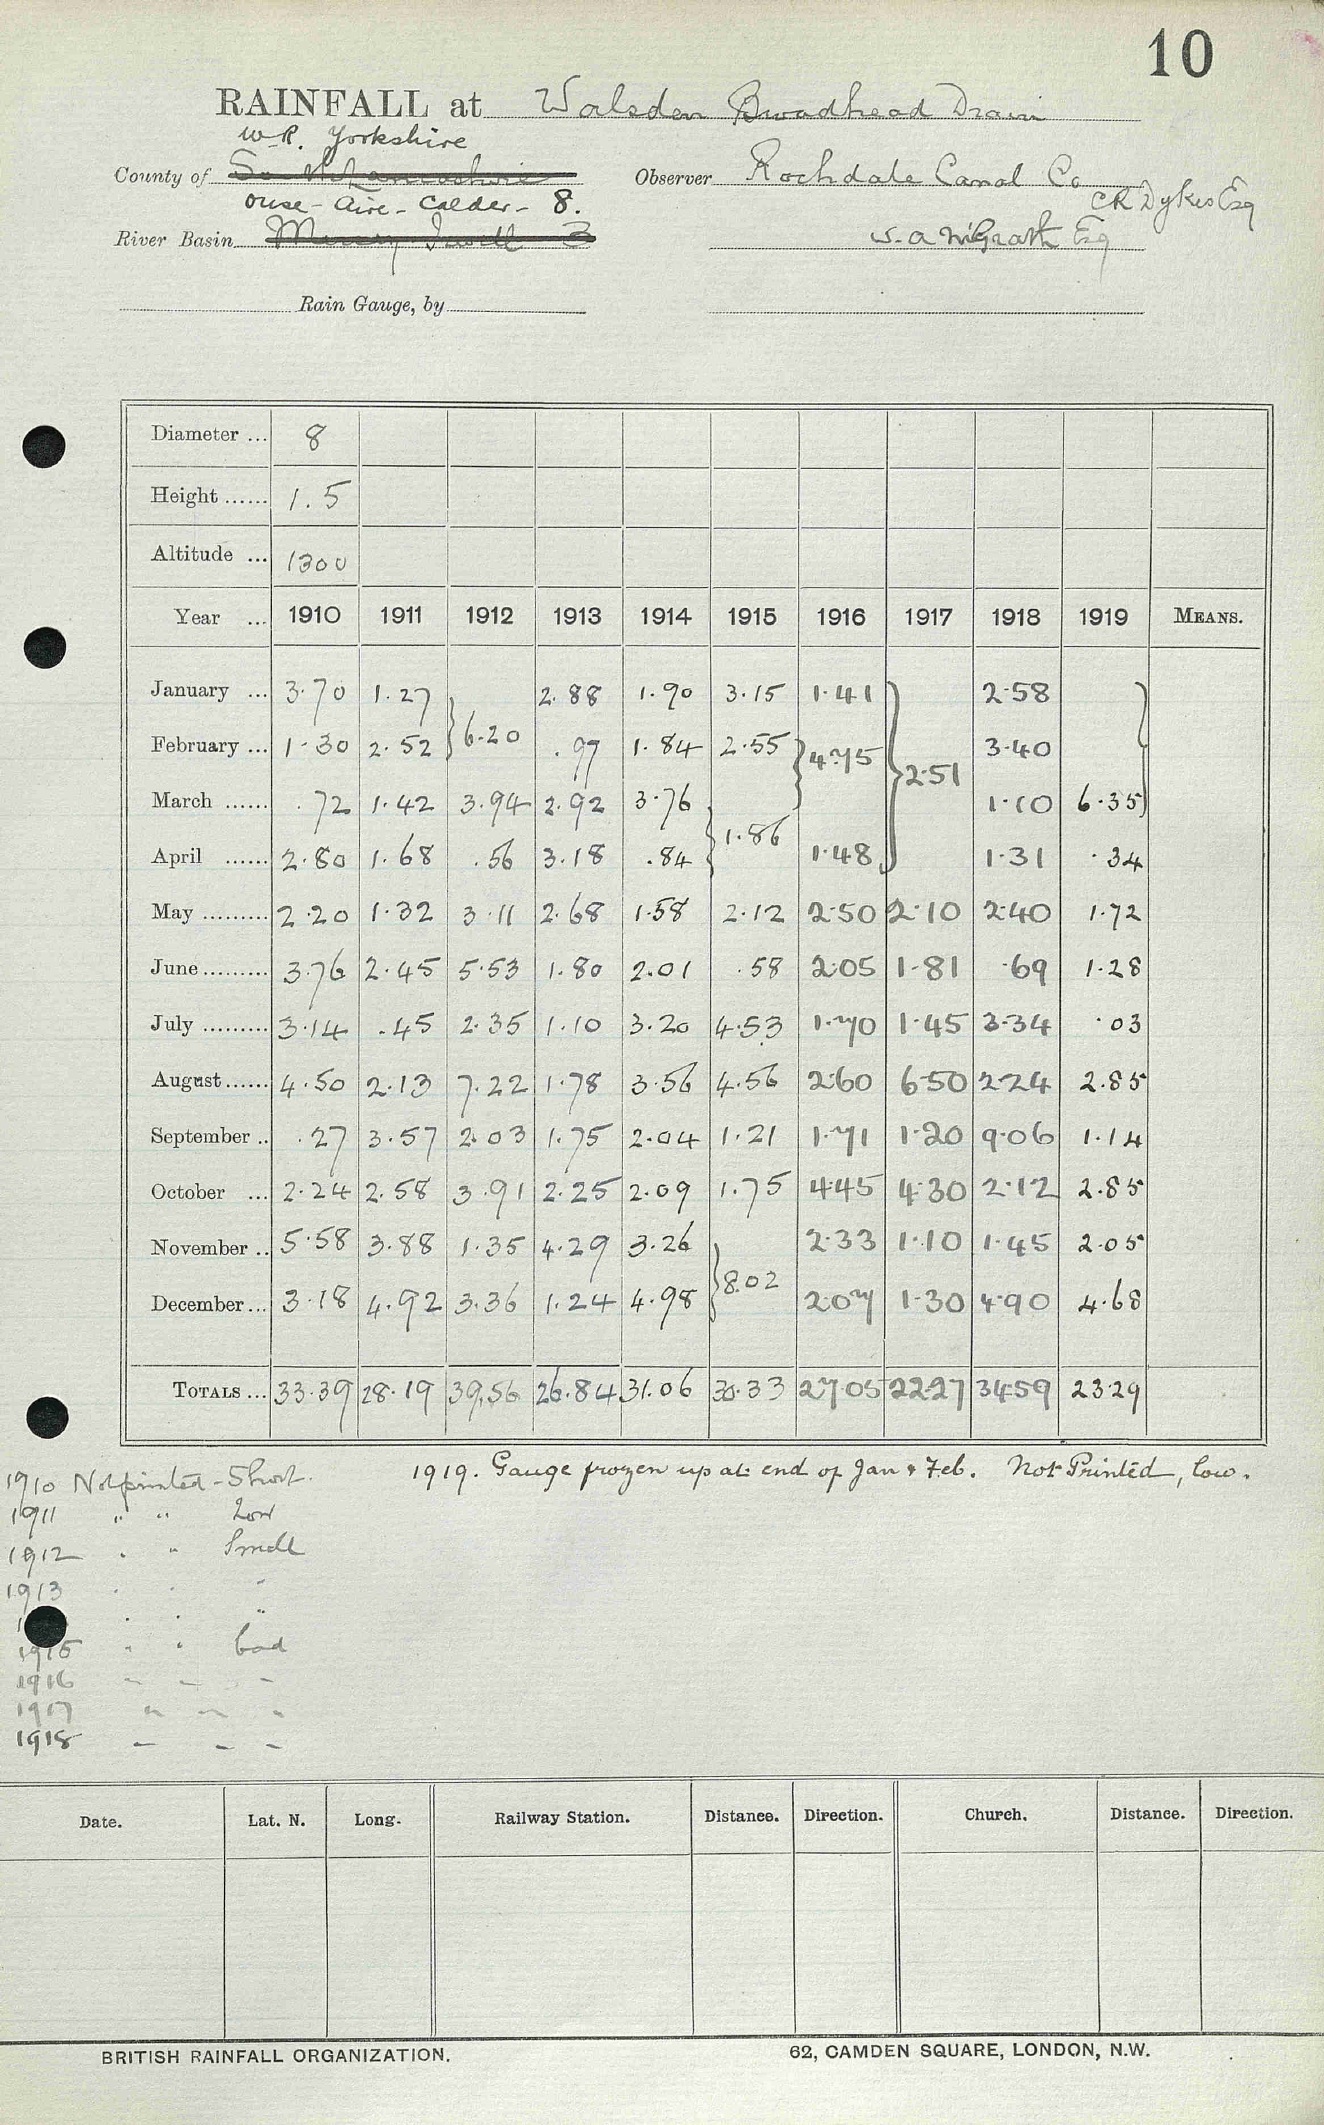 10
RAINFALL at Walsden Broadhead Drain
W.R. Yorkshire
County of So. W. Lancashire Observer Rochdale Canal Co
Ouse - Aire - Calder - 8. C R Dykes Esq
River Basin Mersey - Irwell 3 W. A McGrath Esq
Rain Gauge, by
Diameter ... 8
Height ...... 1.5
Altitude ... 1300
Year ... 1910 1911 1912 1913 1914 1915 1916 1917 1918 1919 MEANS.
January ... 3.70 1.27 2.88 1.90 3.15 1.41 2.58
6.20
February ... 1.30 2.52 .97 1.84 2.55 3.40
4.75 2.51
March ...... .72 1.42 3.94 2.92 3.76 1.10 6.35
1.86
April ...... 2.80 1.68 .56 3.18 .84 1.48 1.31 .34
May ......... 2.20 1.32 3.11 2.68 1.58 2.12 2.50 2.10 2.40 1.72
June ......... 3.76 2.45 5.53 1.80 2.01 .58 2.05 1.81 .69 1.28
July ......... 3.14 .45 2.35 1.10 3.20 4.53 1.70 1.45 3.34 .03
August ...... 4.50 2.13 7.22 1.78 3.56 4.56 2.60 6.50 2.24 2.85
September .. .27 3.57 2.03 1.75 2.04 1.21 1.71 1.20 9.06 1.14
October ... 2.24 2.58 3.91 2.25 2.09 1.75 4.45 4.30 2.12 2.85
November .. 5.58 3.88 1.35 4.29 3.26 2.33 1.10 1.45 2.05
8.02
December ... 3.18 4.92 3.36 1.24 4.98 2.07 1.30 4.90 4.68
TOTALS ... 33.39 28.19 39.56 26.84 31.06 30.33 27.05 22.27 34.59 23.29
1919. Gauge frozen up at end of Jan & Feb. Not Printed, low.
1910 Not printed - Short.
1911 " " Low
1912 " " Small
1913 " " "
" " "
1915 " " bad
1916 " " "
1917 " " "
1918 " " "
Date. Lat. N. Long. Railway Station. Distance. Direction. Church. Distance. Direction.
BRITISH RAINFALL ORGANIZATION. 62, CAMDEN SQUARE, LONDON, N.W.